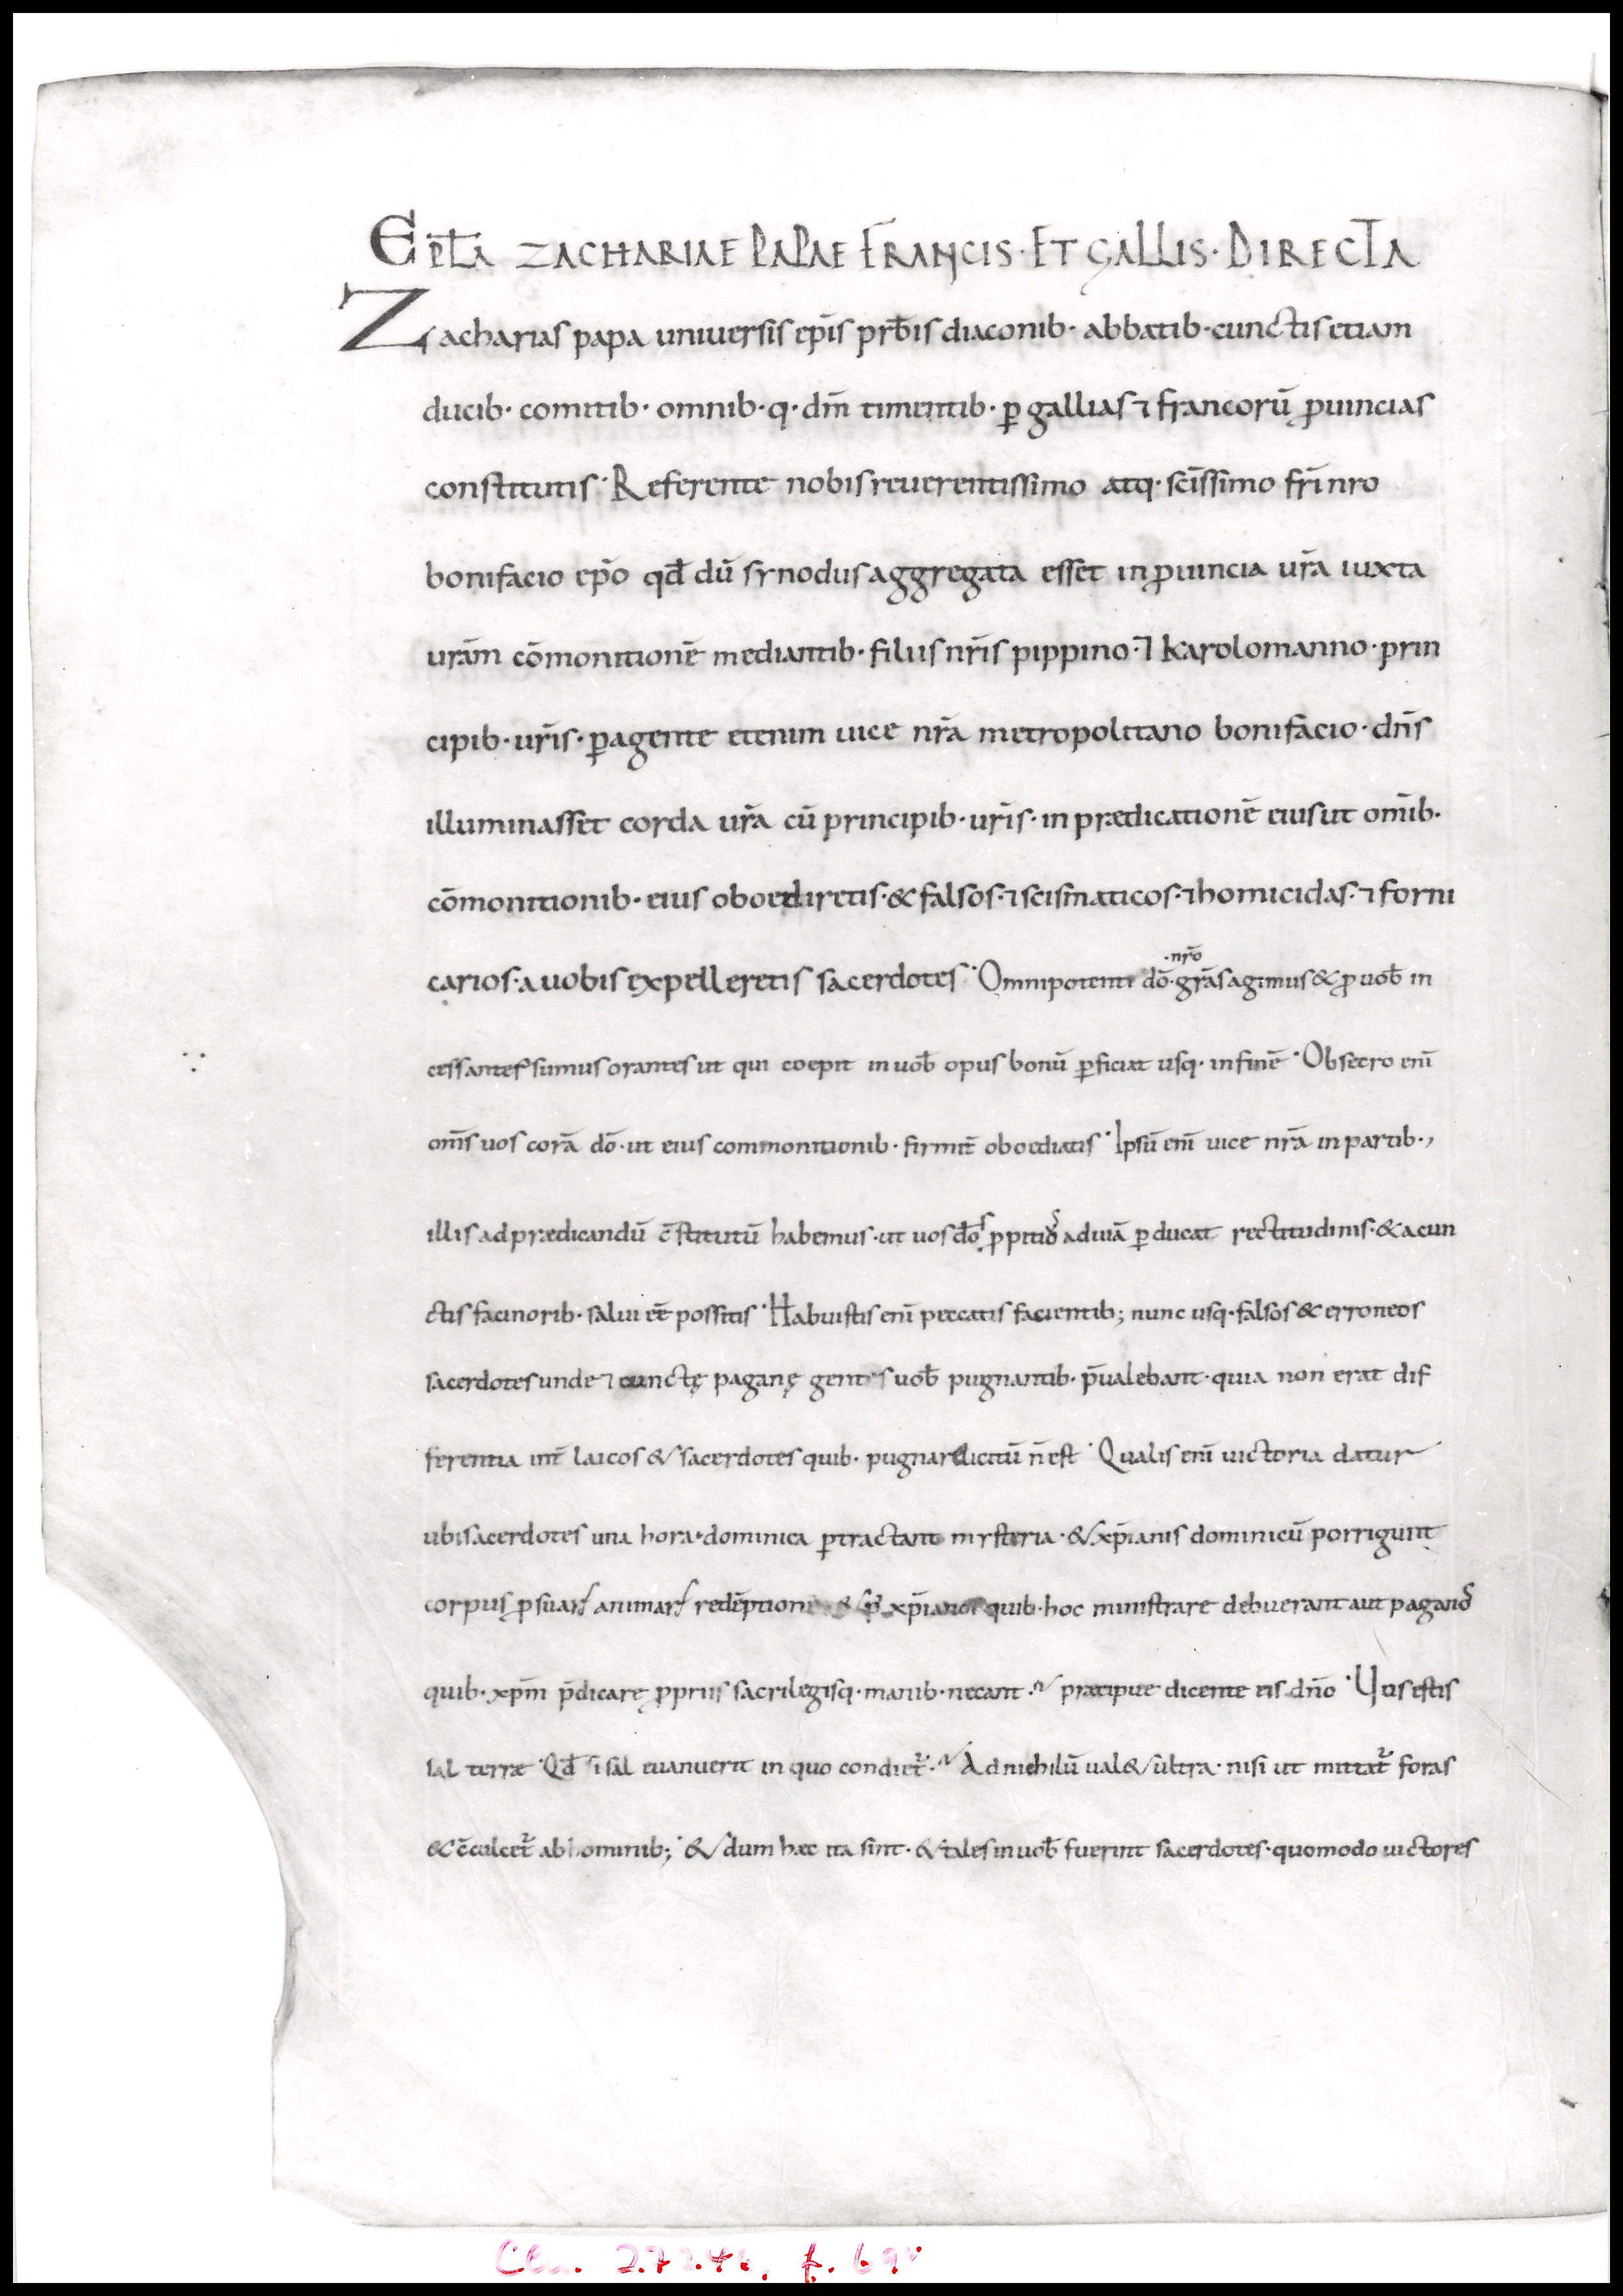 Epła ZACHARIAE PAPAE FRANCIS · ET GALLIS · DIRECTA
Zacharias papa universis ep̄is prƀis diaconib· abbatib· cunctis etiam
ducib· comitib· omnib·q· dm̄ timentib· ꝑ gallias ⁊ francorū ꝓuincias
constitutis · Referente nobis reuerentissimo atq· sc̄issimo fr̄i nro
bonifacio ep̄o qđ dū synodus aggregata esset in ꝓuincia ur̄a iuxta
urām cōmonitionē mediantib· filiis nr̄is pippino · ⁊ karolomanno · prin
cipib· ur̄is · ꝑagente etenim uice nr̄a metropolitano bonifacio · dn̄s
illuminasset corda ur̄a cū principib· ur̄is · in prædicationē eius ut om̄ib·
cōmonitionib· eius oboediretis · & falsos · ⁊ scismaticos · ⁊ homicidas · ⁊ forni
carios · a uobis expelleretis sacerdotes · Omnipotenti dō · nrō · gr̄as agimus & ꝓ uoƀ in
cessantes sumus orantes ut qui coepit in uoƀ opus bonū ꝑficiat usq· in finē · Obsecro enī
om̄s uos corā dō · ut eius commonitionib· firmit̄ oboediatis · Ipsū enī uice nr̄a in partib·,
illis ad prædicandū c̄stitutū habemus · ut uos ds̄ ꝓpitiꝰ ad uiā ꝑducat rectitudinis · & a cun
ctis facinorib· salui eē possitis · Habuistis enī peccatis facientib; nunc usq· falsos & erroneos
sacerdotes unde ⁊ cunctę paganę gentes uoƀ pugnantib· p̄ualebant · quia non erat dif
ferentia int̄ laicos & sacerdotes quib· pugnare licitū n̄ est · Qualis enī uictoria datur
ubi sacerdotes una hora · dominica ꝑtractant mysteria · & xp̄ianis dominicū porrigunt
corpus ꝓ suaꝝ animaꝝ redēptione & xp̄ianos quib· hoc ministrare debuerant aut paganoꝰ
quib· xp̄m p̄dicare ꝓpriis sacrilegisq· manib· necant · præcipue dicente eis dn̄o · Uos estis
sal terræ · Qđ si sal euanuerit in quo condiet᷑ · Ad nichilū ual& ultra · nisi ut mittat᷑ foras
& c̄culcet᷑ ab hominib; · & dum hæc ita sint · & tales in uoƀ fuerint sacerdotes · quomodo uictores
Clm. 27246, f. 69v